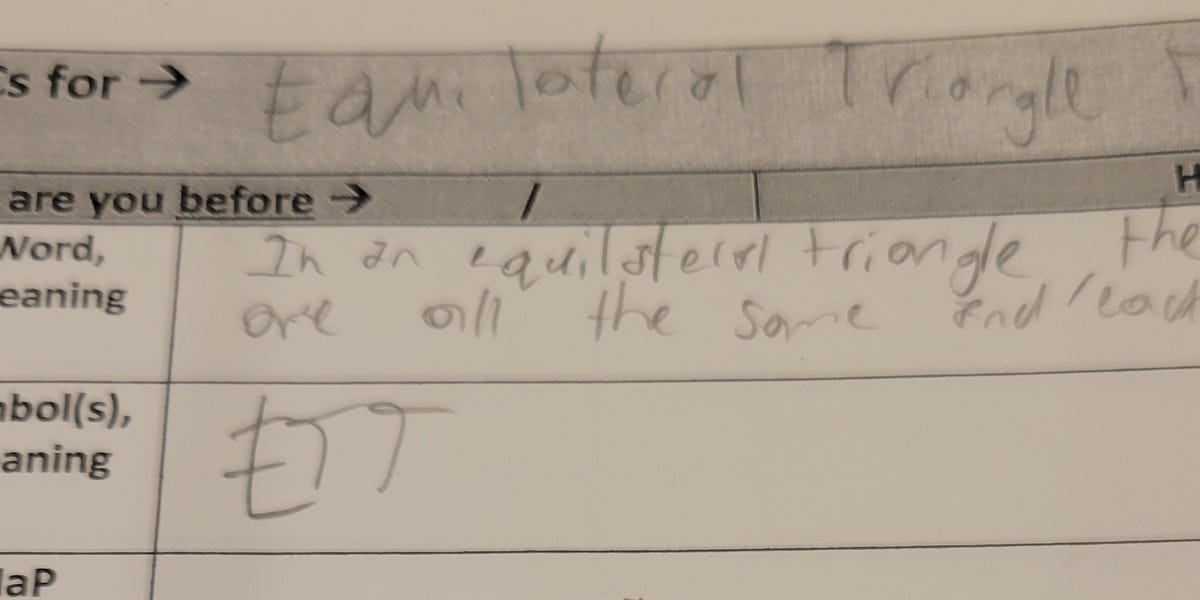 s for → Equilateral Triangle T
are you before → / H
Word, In an equilateral triangle the
eaning are all the same and each
bol(s), ETT
aning
aP